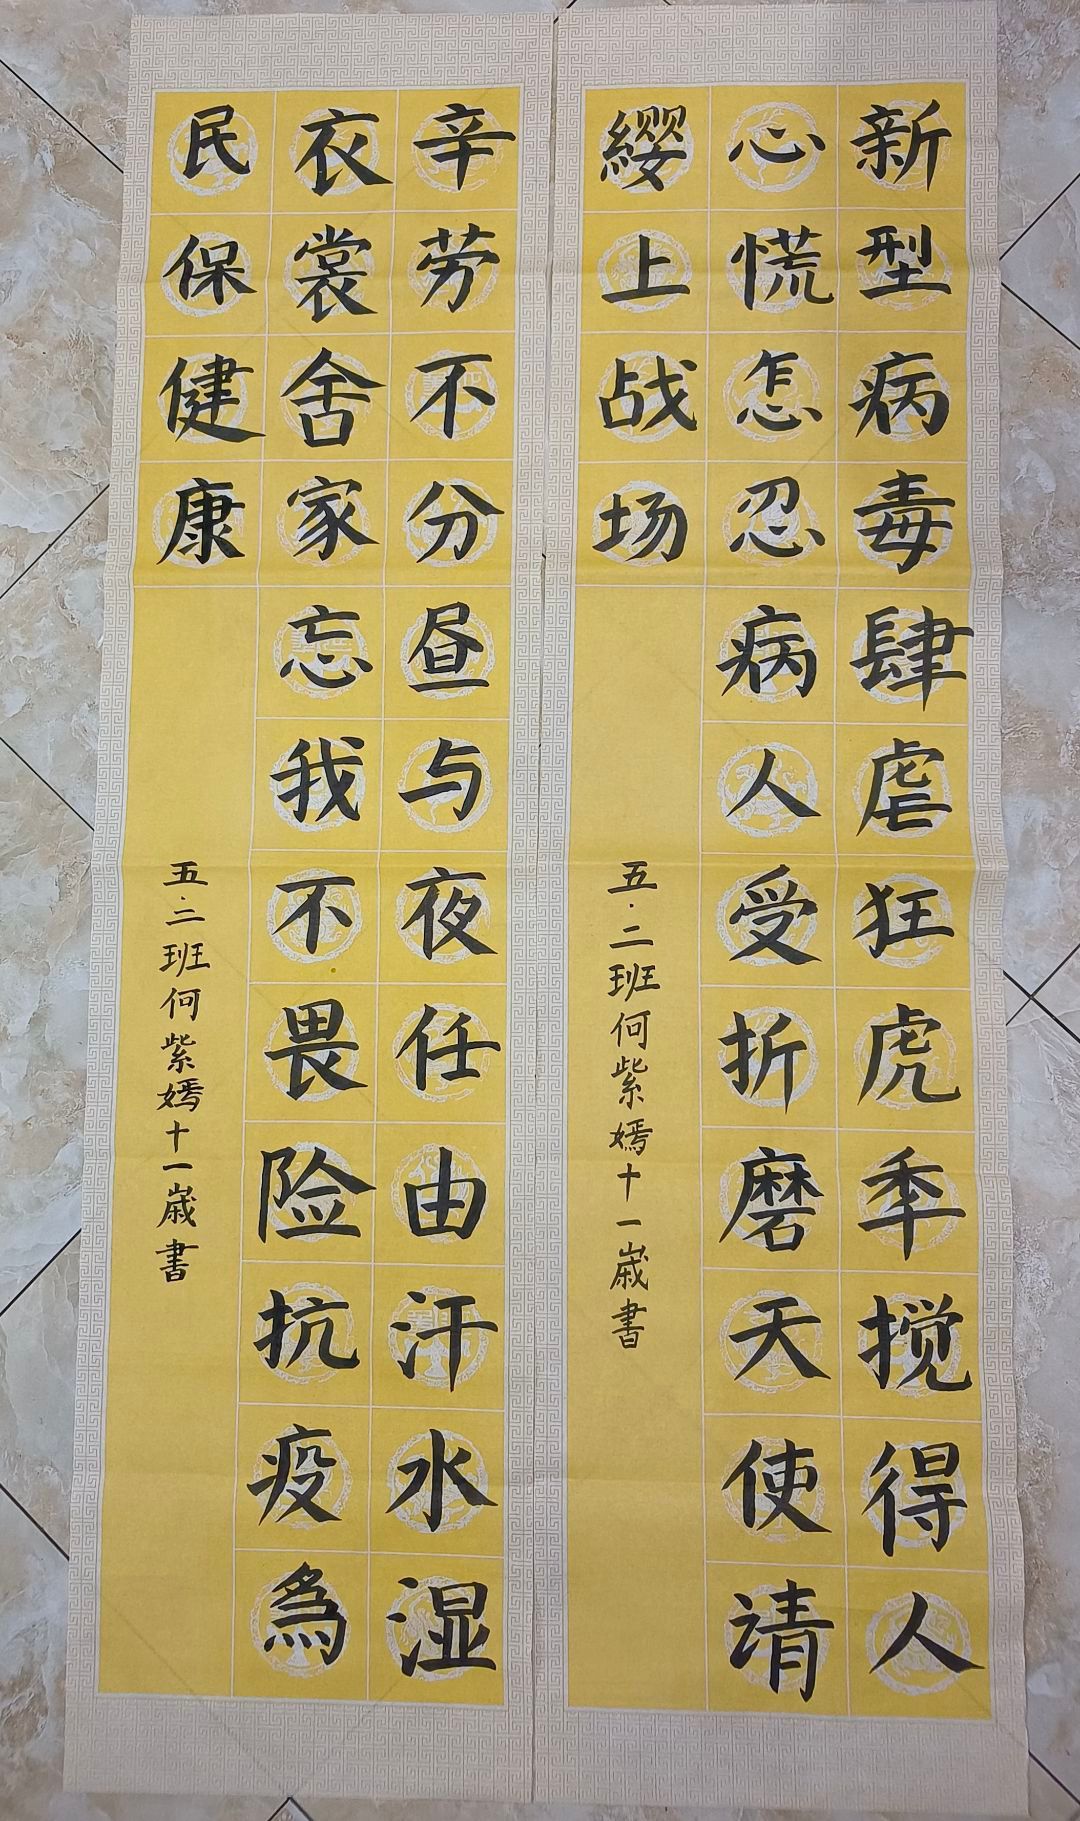 新型病毒肆虐狂虎秊搅得人
心慌怎忍病人受折磨天使请
纓上战场
五·二班何紫嫣十一歲書
辛劳不分昼与夜任由汗水湿
衣裳舍家忘我不畏险抗疫爲
民保健康
五·二班何紫嫣十一歲書